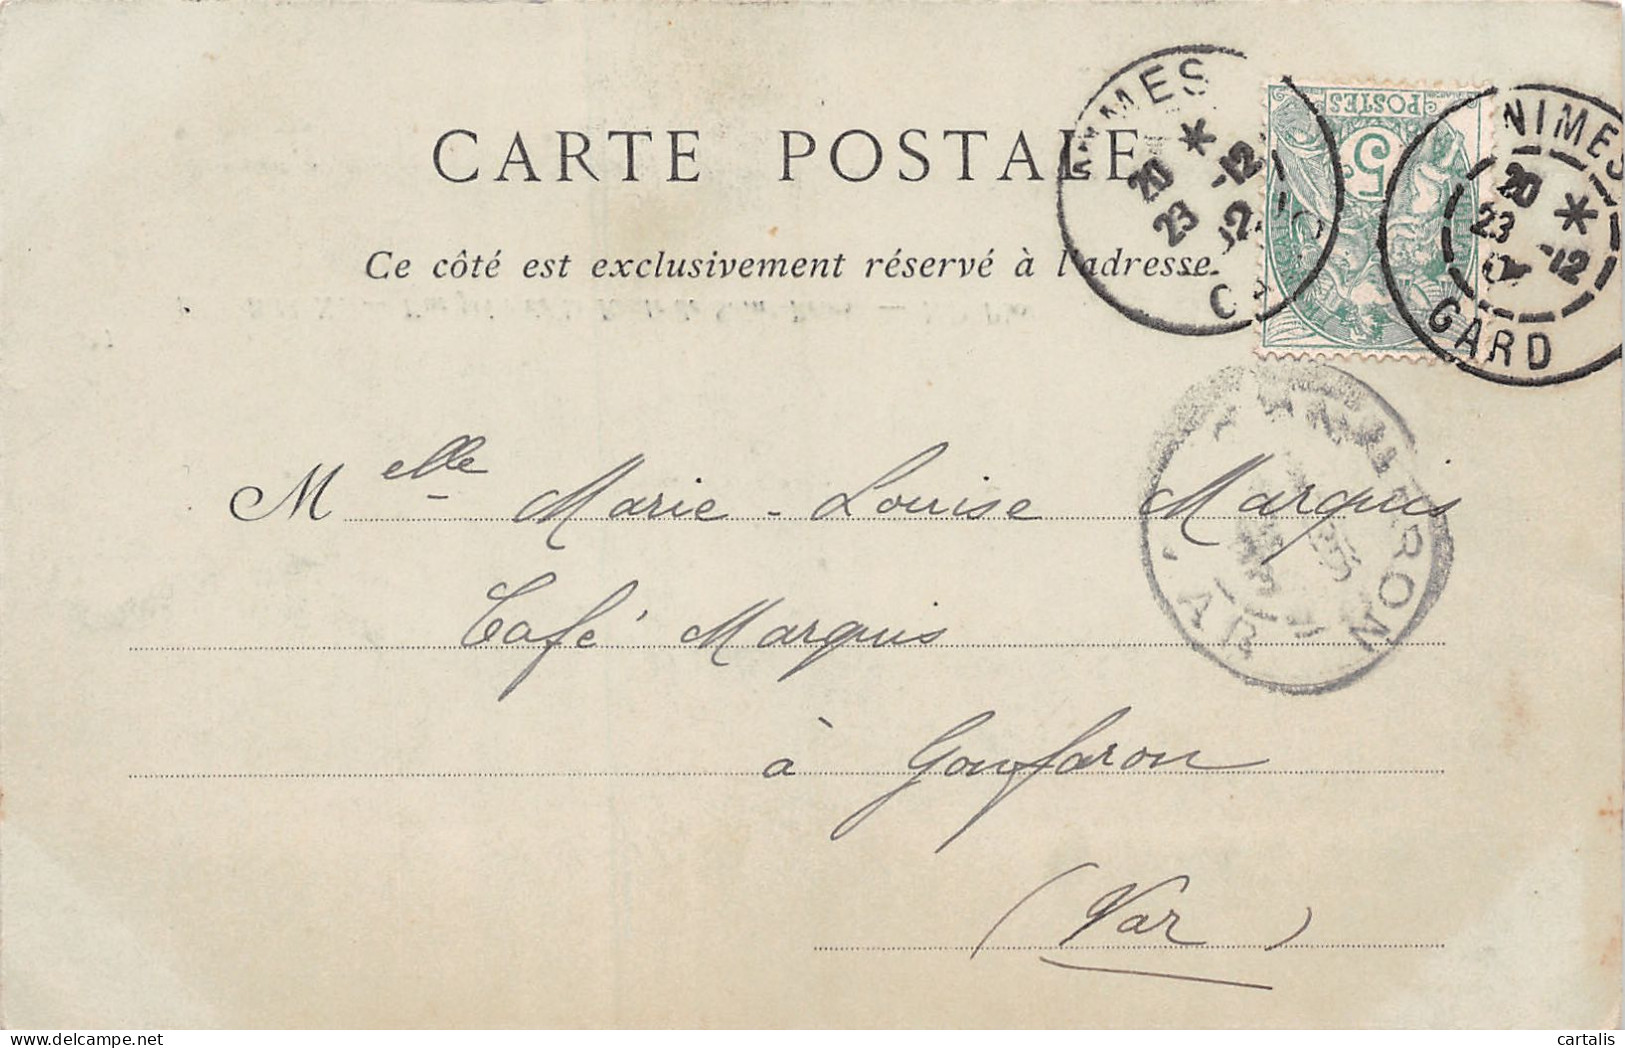 CARTE POSTALE
Ce côté est exclusivement réservé à l'adresse.
NIMES
20 *
23 -12
02
POSTES
5
NIMES
20 *
23 -12
GARD
Melle Marie-Louise Marquis
Café Marquis
à Gonfaron
(Var)
RON
VAR
cartalis